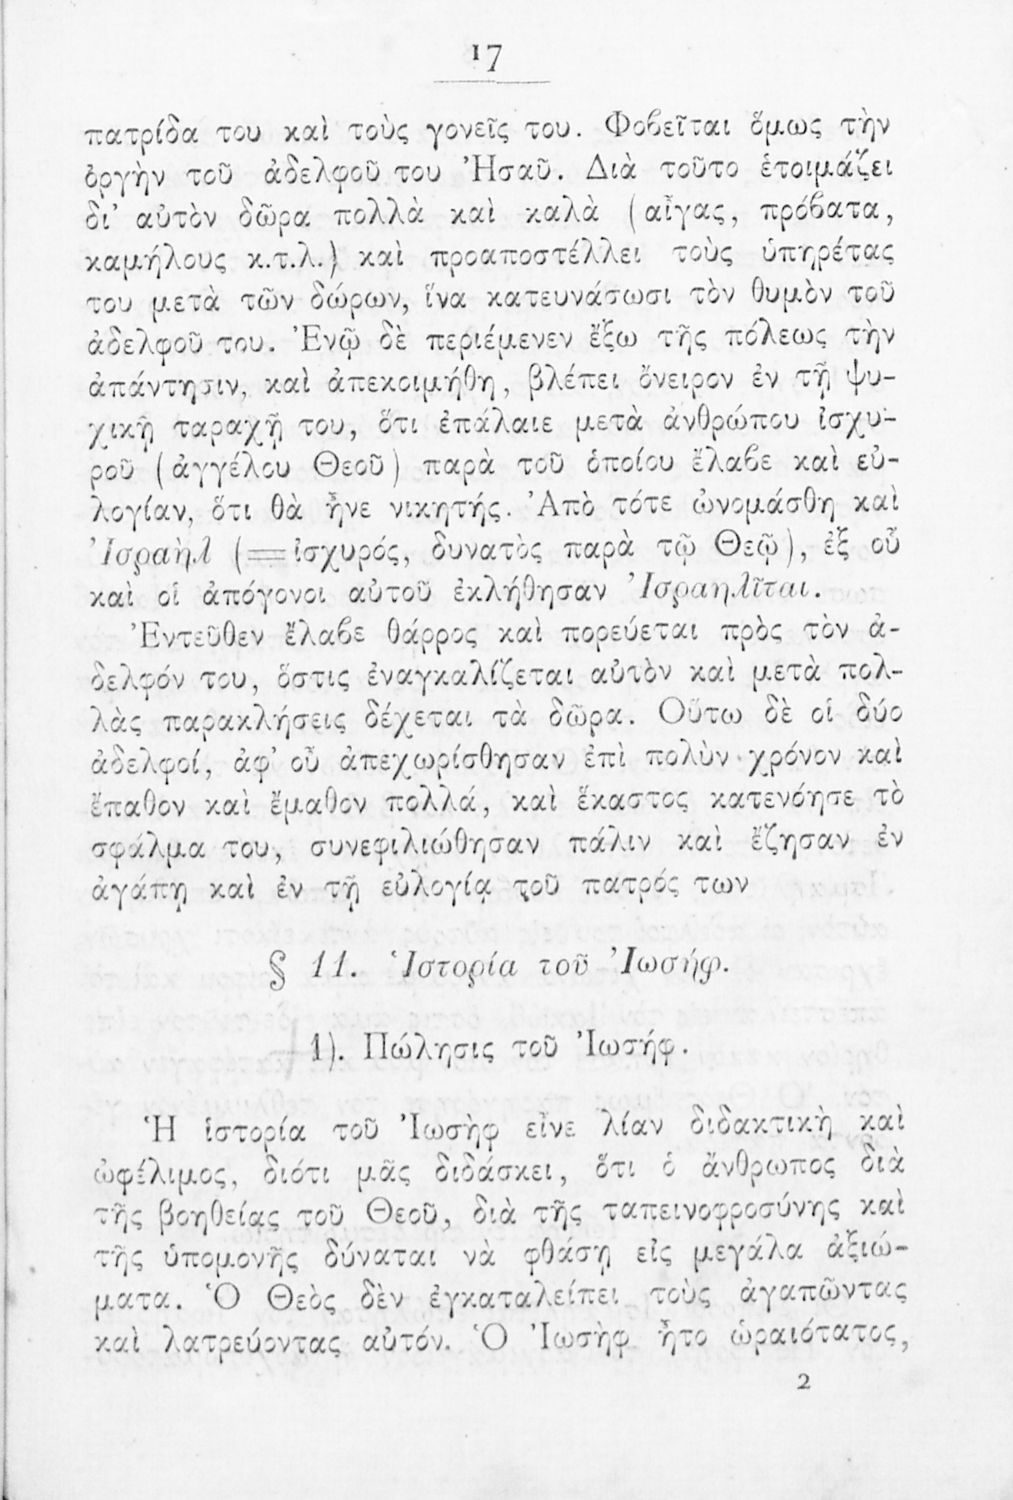 17
πατρίδα του καὶ τοὺς γονεῖς του. Φοβεῖται ὅμως τὴν
ὀργὴν τοῦ ἀδελφοῦ του Ἠσαῦ. Διὰ τοῦτο ἑτοιμάζει
δι' αὐτὸν δῶρα πολλὰ καὶ καλὰ (αἶγας, πρόβατα,
καμήλους κ.τ.λ.) καὶ προαποστέλλει τοὺς ὑπηρέτας
του μετὰ τῶν δώρων, ἵνα κατευνάσωσι τὸν θυμὸν τοῦ
ἀδελφοῦ του. Ἐνῷ δὲ περιέμενεν ἔξω τῆς πόλεως τὴν
ἀπάντησιν, καὶ ἀπεκοιμήθη, βλέπει ὄνειρον ἐν τῇ ψυ-
χικῇ ταραχῇ του, ὅτι ἐπάλαιε μετὰ ἀνθρώπου ἰσχυ-
ροῦ (ἀγγέλου Θεοῦ) παρὰ τοῦ ὁποίου ἔλαβε καὶ εὐ-
λογίαν, ὅτι θὰ ἦνε νικητής. Ἀπὸ τότε ὠνομάσθη καὶ
Ἰσραὴλ (=ἰσχυρός, δυνατὸς παρὰ τῷ Θεῷ), ἐξ οὗ
καὶ οἱ ἀπόγονοι αὐτοῦ ἐκλήθησαν Ἰσραηλῖται.
Ἐντεῦθεν ἔλαβε θάρρος καὶ πορεύεται πρὸς τὸν ἀ-
δελφόν του, ὅστις ἐναγκαλίζεται αὐτὸν καὶ μετὰ πολ-
λὰς παρακλήσεις δέχεται τὰ δῶρα. Οὕτω δὲ οἱ δύο
ἀδελφοί, ἀφ' οὗ ἀπεχωρίσθησαν ἐπὶ πολὺν χρόνον καὶ
ἔπαθον καὶ ἔμαθον πολλά, καὶ ἕκαστος κατενόησε τὸ
σφάλμα του, συνεφιλιώθησαν πάλιν καὶ ἔζησαν ἐν
ἀγάπῃ καὶ ἐν τῇ εὐλογίᾳ τοῦ πατρός των
§ 11. Ἱστορία τοῦ Ἰωσήφ.
1). Πώλησις τοῦ Ἰωσήφ.
Ἡ ἱστορία τοῦ Ἰωσὴφ εἶνε λίαν διδακτικὴ καὶ
ὠφέλιμος, διότι μᾶς διδάσκει, ὅτι ὁ ἄνθρωπος διὰ
τῆς βοηθείας τοῦ Θεοῦ, διὰ τῆς ταπεινοφροσύνης καὶ
τῆς ὑπομονῆς δύναται νὰ φθάσῃ εἰς μεγάλα ἀξιώ-
ματα. Ὁ Θεὸς δὲν ἐγκαταλείπει τοὺς ἀγαπῶντας
καὶ λατρεύοντας αὐτόν. Ὁ Ἰωσὴφ ἦτο ὡραιότατος,
2